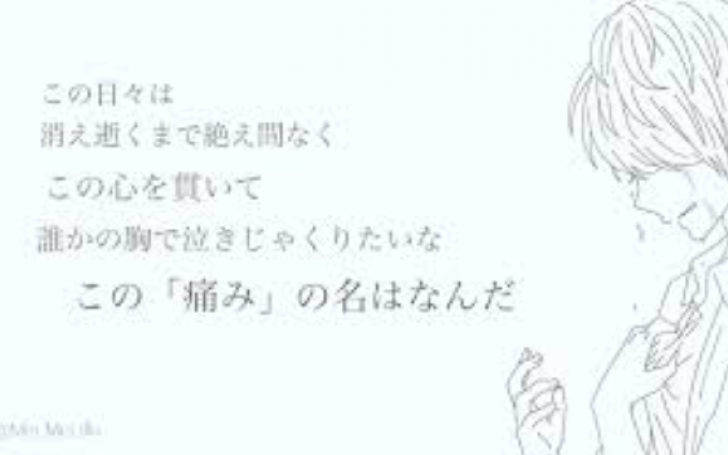 この日々は
消え逝くまで絶え間なく
この心を貫いて
誰かの胸で泣きじゃくりたいな
この「痛み」の名はなんだ